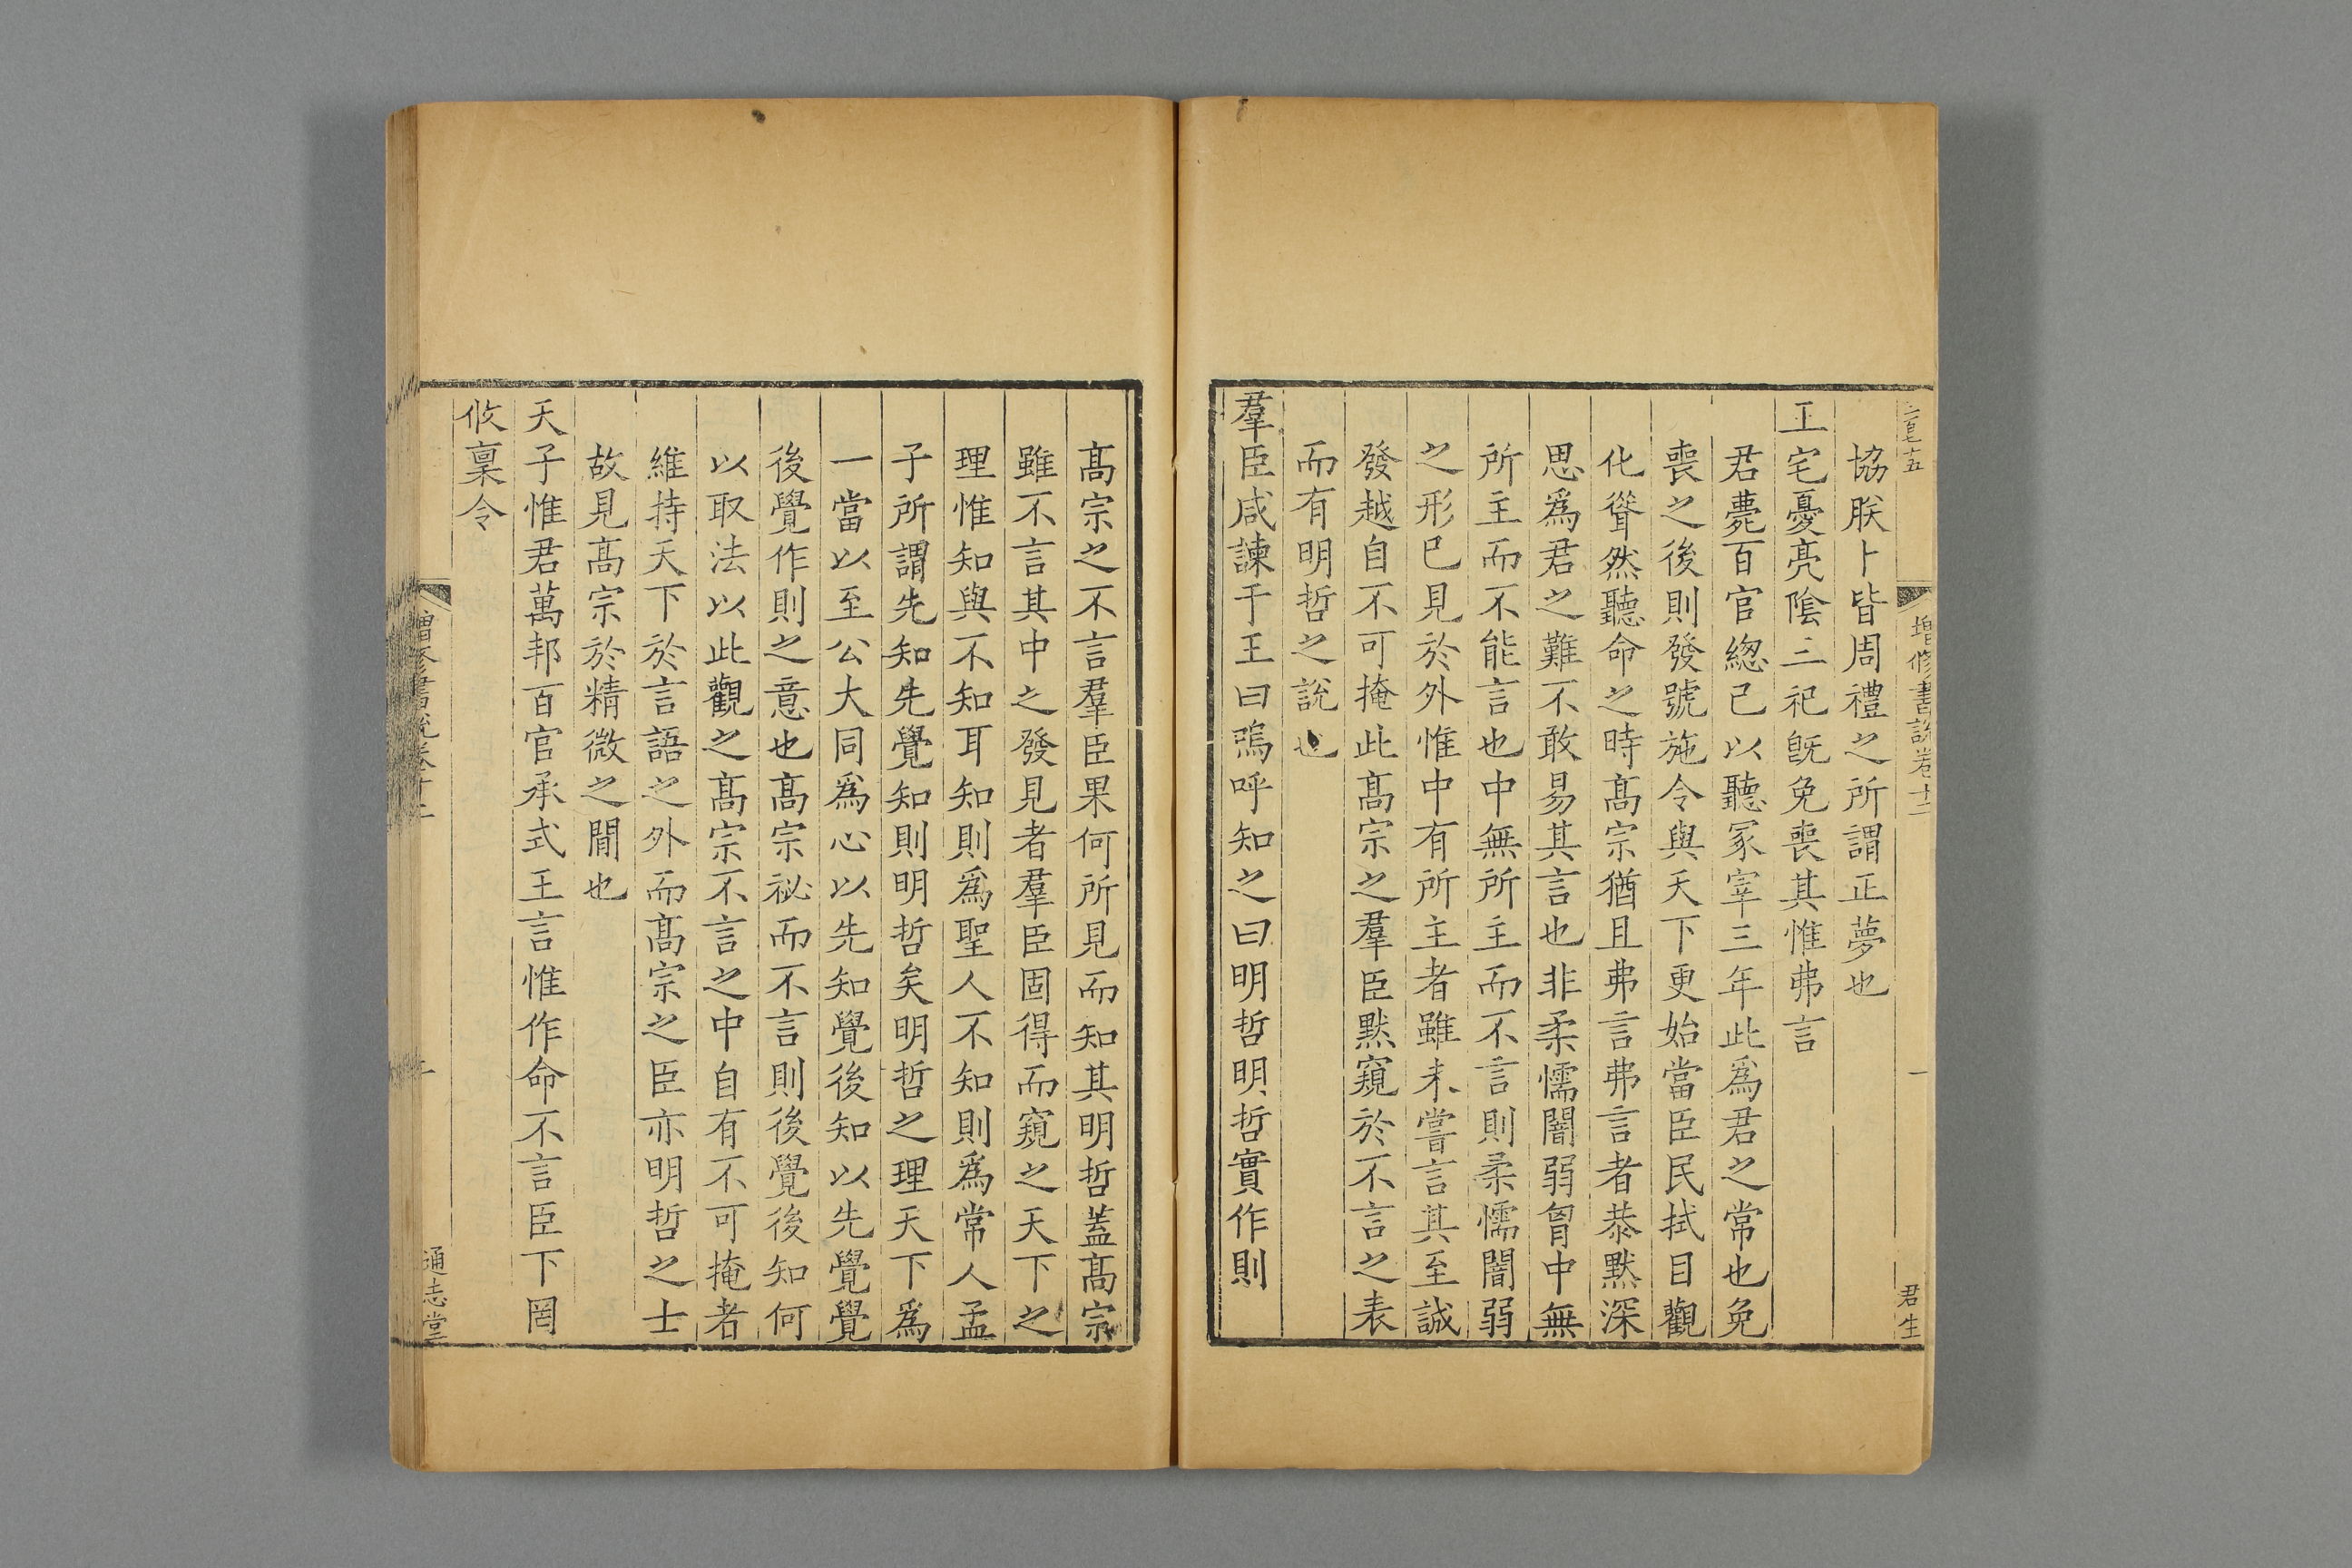 增修書說卷十二
一
君生
協朕卜皆周禮之所謂正夢也
王宅憂亮陰三祀旣免喪其惟弗言
君薨百官緫己以聽冢宰三年此爲君之常也免
喪之後則發號施令與天下更始當臣民拭目觀
化聳然聽命之時髙宗猶且弗言弗言者恭黙深
思爲君之難不敢易其言也非柔懦闇弱胷中無
所主而不能言也中無所主而不言則柔懦闇弱
之形已見於外惟中有所主者雖未嘗言其至誠
發越自不可掩此髙宗之羣臣黙窺於不言之表
而有明哲之說也
羣臣咸諫于王曰嗚呼知之曰明哲明哲實作則
髙宗之不言羣臣果何所見而知其明哲蓋髙宗
雖不言其中之發見者羣臣固得而窺之天下之
理惟知與不知耳知則爲聖人不知則爲常人孟
子所謂先知先覺知則明哲矣明哲之理天下爲
一當以至公大同爲心以先知覺後知以先覺覺
後覺作則之意也髙宗祕而不言則後覺後知何
以取法以此觀之髙宗不言之中自有不可掩者
維持天下於言語之外而髙宗之臣亦明哲之士
故見髙宗於精微之間也
天子惟君萬邦百官承式王言惟作命不言臣下罔
攸稟令
增修書說卷十二
通志堂